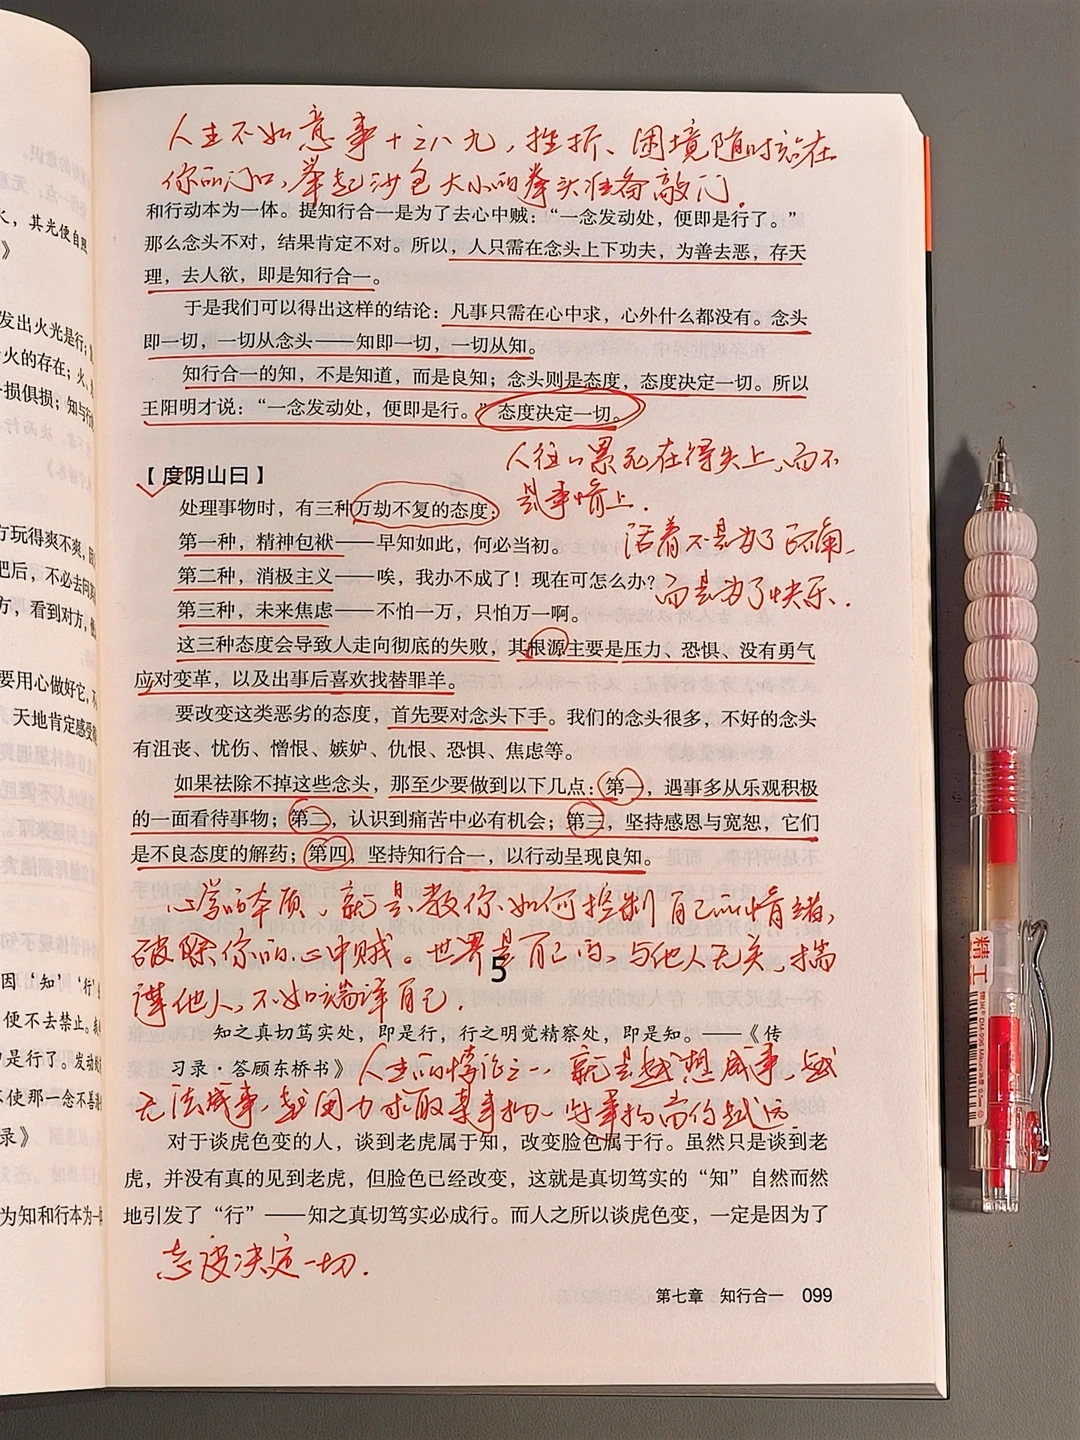 人生不如意事十之八九，挫折、困境随时站在
你的门口，举起沙包大小的拳头准备敲门．
和行动本为一体。提知行合一是为了去心中贼：“一念发动处，便即是行了。”
那么念头不对，结果肯定不对。所以，人只需在念头上下功夫，为善去恶，存天
理，去人欲，即是知行合一。
于是我们可以得出这样的结论：凡事只需在心中求，心外什么都没有。念头
即一切，一切从念头——知即一切，一切从知。
知行合一的知，不是知道，而是良知；念头则是态度，态度决定一切。所以
王阳明才说：“一念发动处，便即是行。”态度决定一切。
人往往累死在得失上，而不
是事情上．
【度阴山曰】
处理事物时，有三种万劫不复的态度：
第一种，精神包袱——早知如此，何必当初。
活着不是为了正确，
第二种，消极主义——唉，我办不成了！现在可怎么办？
而是为了快乐．
第三种，未来焦虑——不怕一万，只怕万一啊。
这三种态度会导致人走向彻底的失败，其根源主要是压力、恐惧、没有勇气
应对变革，以及出事后喜欢找替罪羊。
要改变这类恶劣的态度，首先要对念头下手。我们的念头很多，不好的念头
有沮丧、忧伤、憎恨、嫉妒、仇恨、恐惧、焦虑等。
如果祛除不掉这些念头，那至少要做到以下几点：第一，遇事多从乐观积极
的一面看待事物；第二，认识到痛苦中必有机会；第三，坚持感恩与宽恕，它们
是不良态度的解药；第四，坚持知行合一，以行动呈现良知。
心学的本质，就是教你如何控制自己的情绪，
破除你的心中贼。世界是自己的，与他人无关，揣
摩他人，不如端详自己．
5
知之真切笃实处，即是行，行之明觉精察处，即是知。——《传
习录·答顾东桥书》
人生的悖论之一，就是越想成事，越
无法成事，越用力求取某事物，此事物离你越远．
对于谈虎色变的人，谈到老虎属于知，改变脸色属于行。虽然只是谈到老
虎，并没有真的见到老虎，但脸色已经改变，这就是真切笃实的“知”自然而然
地引发了“行”——知之真切笃实必成行。而人之所以谈虎色变，一定是因为了
态度决定一切．
第七章 知行合一 099
火，其光便自照
》
发出火光是行；
火的存在；火、
损俱损；知与行
方玩得爽不爽，
把后，不必去问
方，看到对方，
要用心做好它，
天地肯定感受
因‘知’‘行’
便不去禁止。
是行了。发动
不使那一念不善
录》
为知和行本为一体
精工